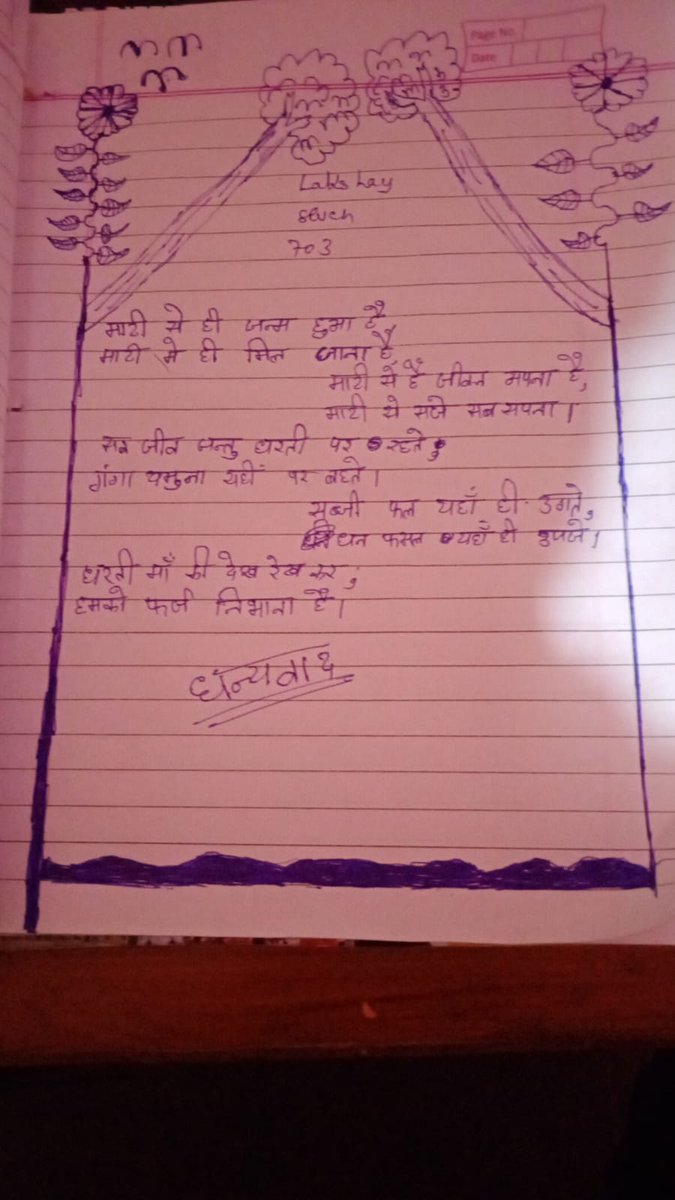 Page No.
Date
Lakshay
seven
703
माटी से ही जन्म हुआ है
माटी मे ही मिल जाना है
माटी से है जीवन अपना है,
माटी से सजे सब सपना।
सब जीव जन्तु धरती पर रहते,
गंगा यमुना यहीं पर बहते।
सब्जी फल यहाँ ही उगते,
धन फसल यहाँ ही उपजे।
धरती माँ की देख रेख कर,
हमको फर्ज निभाना है।
धन्यवाद